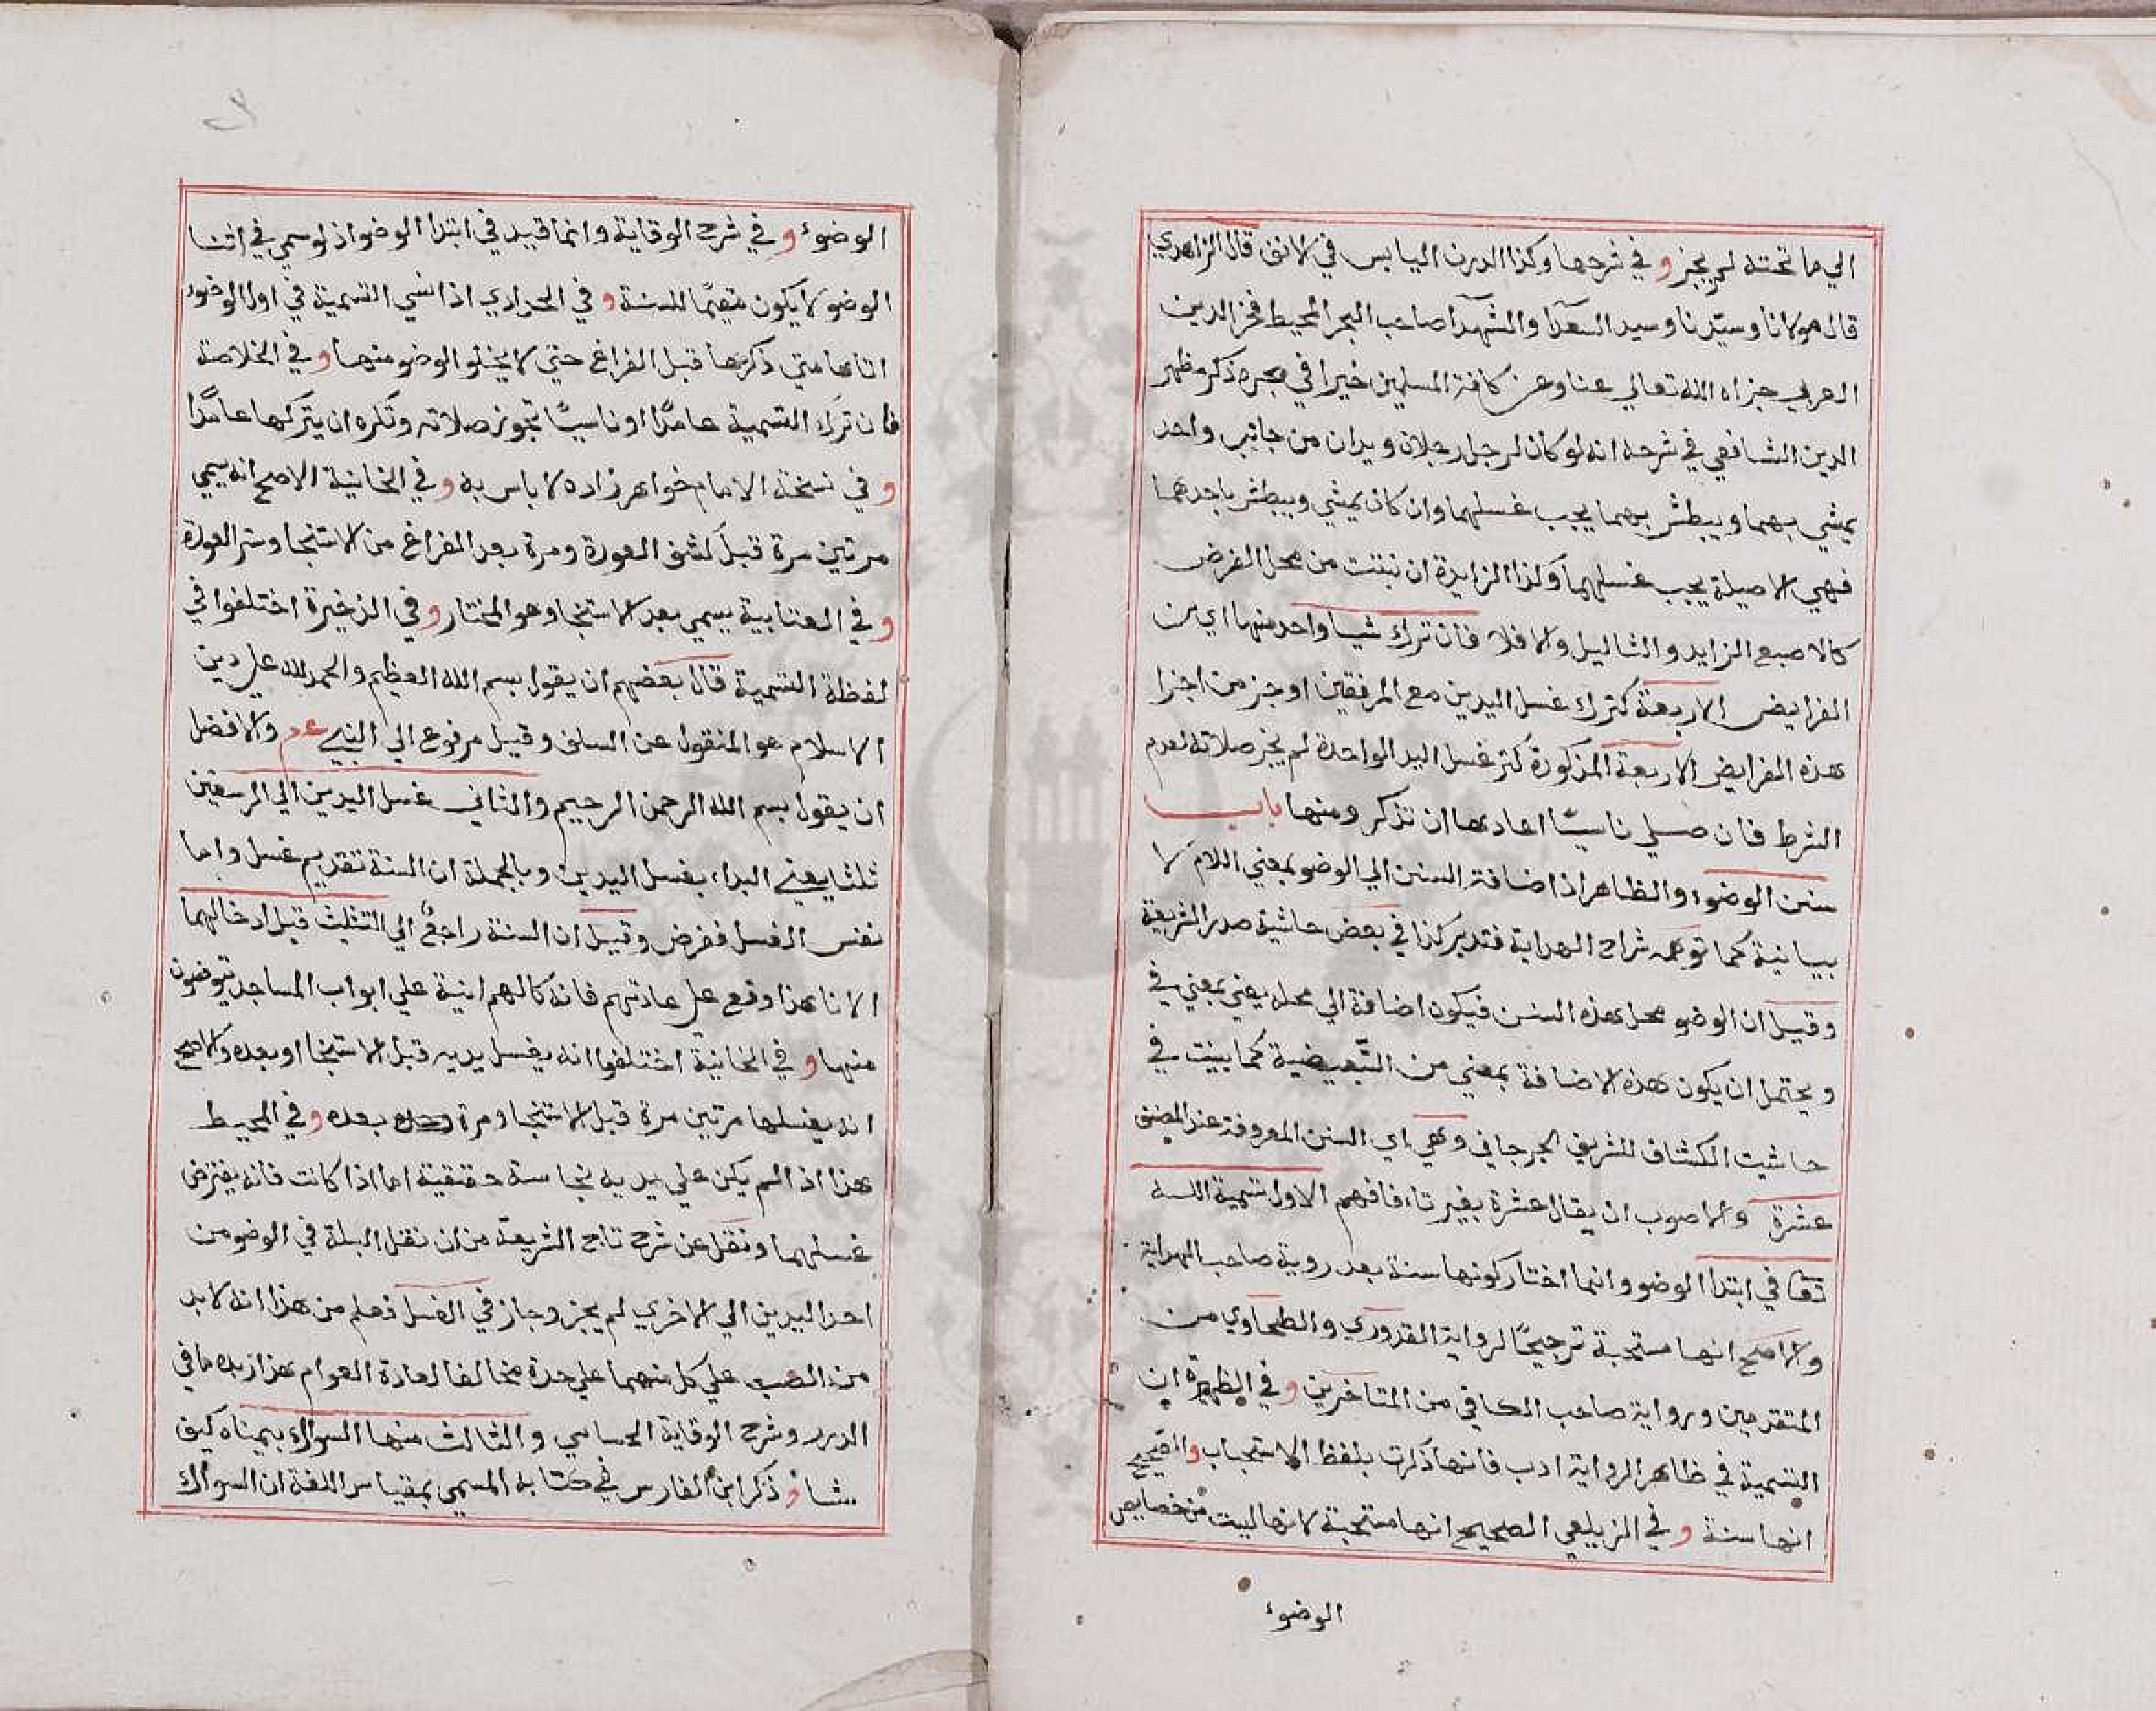 الي ما تحته لم يجز و في شرحها وكذا الدرن اليابس في الانف قال الزاهدي
قال مولانا وسيّدنا وسيد السعدآ والشهدآ صاحب البحر المحيط فخر الدين
العربي جزاه الله تعالي عنا وعن كافة المسلمين خيرا في بحره ذكر مظهر
الدين الشافعي في شرحه انه لو كان لرجل رجلان ويدان من جانب واحد
يمشي بهما ويبطش بهما يجب غسلهما وان كان يمشي ويبطش باحدهما
فهي الاصيلة يجب غسلهما وكذا الزايدة ان نبتت من محل الفرض
كالاصبع الزايد والثاليل والا فلا فان ترك شيا واحد منها اي من
الفرايض الاربعة كترك غسل اليدين مع المرفقين او جز من اجزا
هذه الفرايض الاربعة المذكورة كترك غسل اليد الواحدة لم يجز صلاته لعدم
الشرط فان صلي ناسيًا اعادها ان تذكر ومنها باب
سنن الوضوء والظاهر اذ اضافة السنن الي الوضو بمعني اللام لا
بيانية كما توهمه شراح الهداية فتدبر كذا في بعض حاشية صدر الشريعة
وقيل ان الوضو محل هذه السنن فيكون اضافة الي محله يعني بمعني في
ويحتمل ان يكون هذه الاضافة بمعني من التّبعيضية كما بينت في
حاشيت الكشاف للشريف الجرجاني وهي اي السنن المعروفة عند المصنف
عشرة والاصوب ان يقال عشرة بغير تاء فافهم الاول تسمية الله
تعا في ابتدا الوضو وانما اختار كونها سنة بعد روية صاحب الهداية
والاصح انها مستحبة ترجيحًا لرواية القدوري والطحاوي من
المتقدمين ورواية صاحب الكافي من المتاخرين و في الظهيرة ان
التسمية في ظاهر الرواية ادب فانها ذكرت بلفظ الاستحباب والصحيح
انها سنة و في الزيلعي الصحيح انها مستحبة لانها ليست من خصايص
الوضوء
الوضوء و في شرح الوقاية وانما قيد في ابتدا الوضو اذ لو سمي في اثنا
الوضو لا يكون مقيمًا للسنة و في الحدادي اذا نسي التسمية في اول الوضوء
اتا بها متي ذكرها قبل الفراغ حتي لا يخلو الوضو منها و في الخلاصة
فان ترك التسمية عامدًا او ناسيًا تجوز صلاته وتكره ان يتركها عامدًا
و في نسخة الامام خواهر زاده لا باس به و في الخانية الاصح انه يسمي
مرتين مرة قبل كشف العورة ومرة بعد الفراغ من الاستنجا وستر العورة
و في العتابية يسمي بعد الاستنجا وهو المختار و في الذخيرة اختلفوا في
لفظة التسمية قال بعضهم ان يقول بسم الله العظيم والحمد لله علي دين
الاسلام هو المنقول عن السلف وقيل مرفوع الي النبي عم والافضل
ان يقول بسم الله الرحمن الرحيم والثاني غسل اليدين الي الرسغين
ثلثا يعني البداء بغسل اليدين وبالجملة ان السنة تقديم غسل واما
نفس الغسل ففرض وقيل ان السنة راجعٌ الي التثليث قبل ادخالهما
الانا هذا وقع علي عادتهم فانه كالهم انية علي ابواب المساجد يتوضون
منها و في الخانية اختلفوا انه يغسل يديه قبل الاستنجا او بعده والاصح
انه يغسلها مرتين مرة قبل الاستنجا ومرة بعده و في المحيط
هذا اذ الم يكن علي يديه نجاسة حقيقية اما اذا كانت فانه يفترض
غسلهما ونقل عن شرح تاج الشريعة من ان نقل البلة في الوضو من
احد اليدين الي الاخري لم يجز وجاز في الغسل فعلم من هذا انه لا بد
من الصب علي كل منهما علي حدة مخالفا لعادة العوام هذا زبده ما في
الدرر وشرح الوقاية الحسامي والثالث منها السواك بيمناه كيف
شا و ذكر ابن الفارس في كتابه المسمي بمقياس اللغة ان السواك